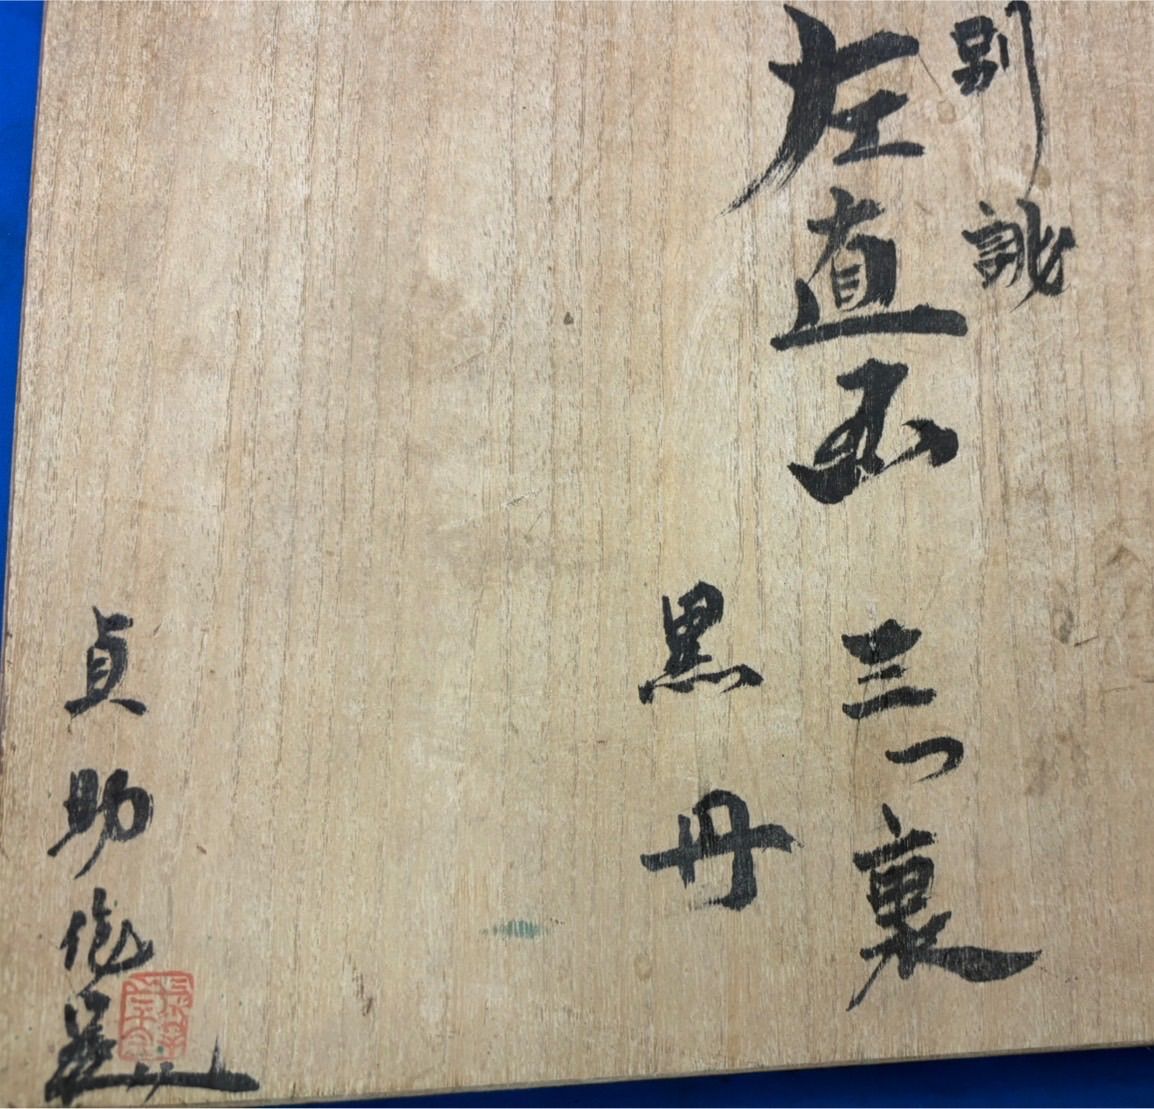 別誂
左直玉 三つ裏
黒丹
貞助作